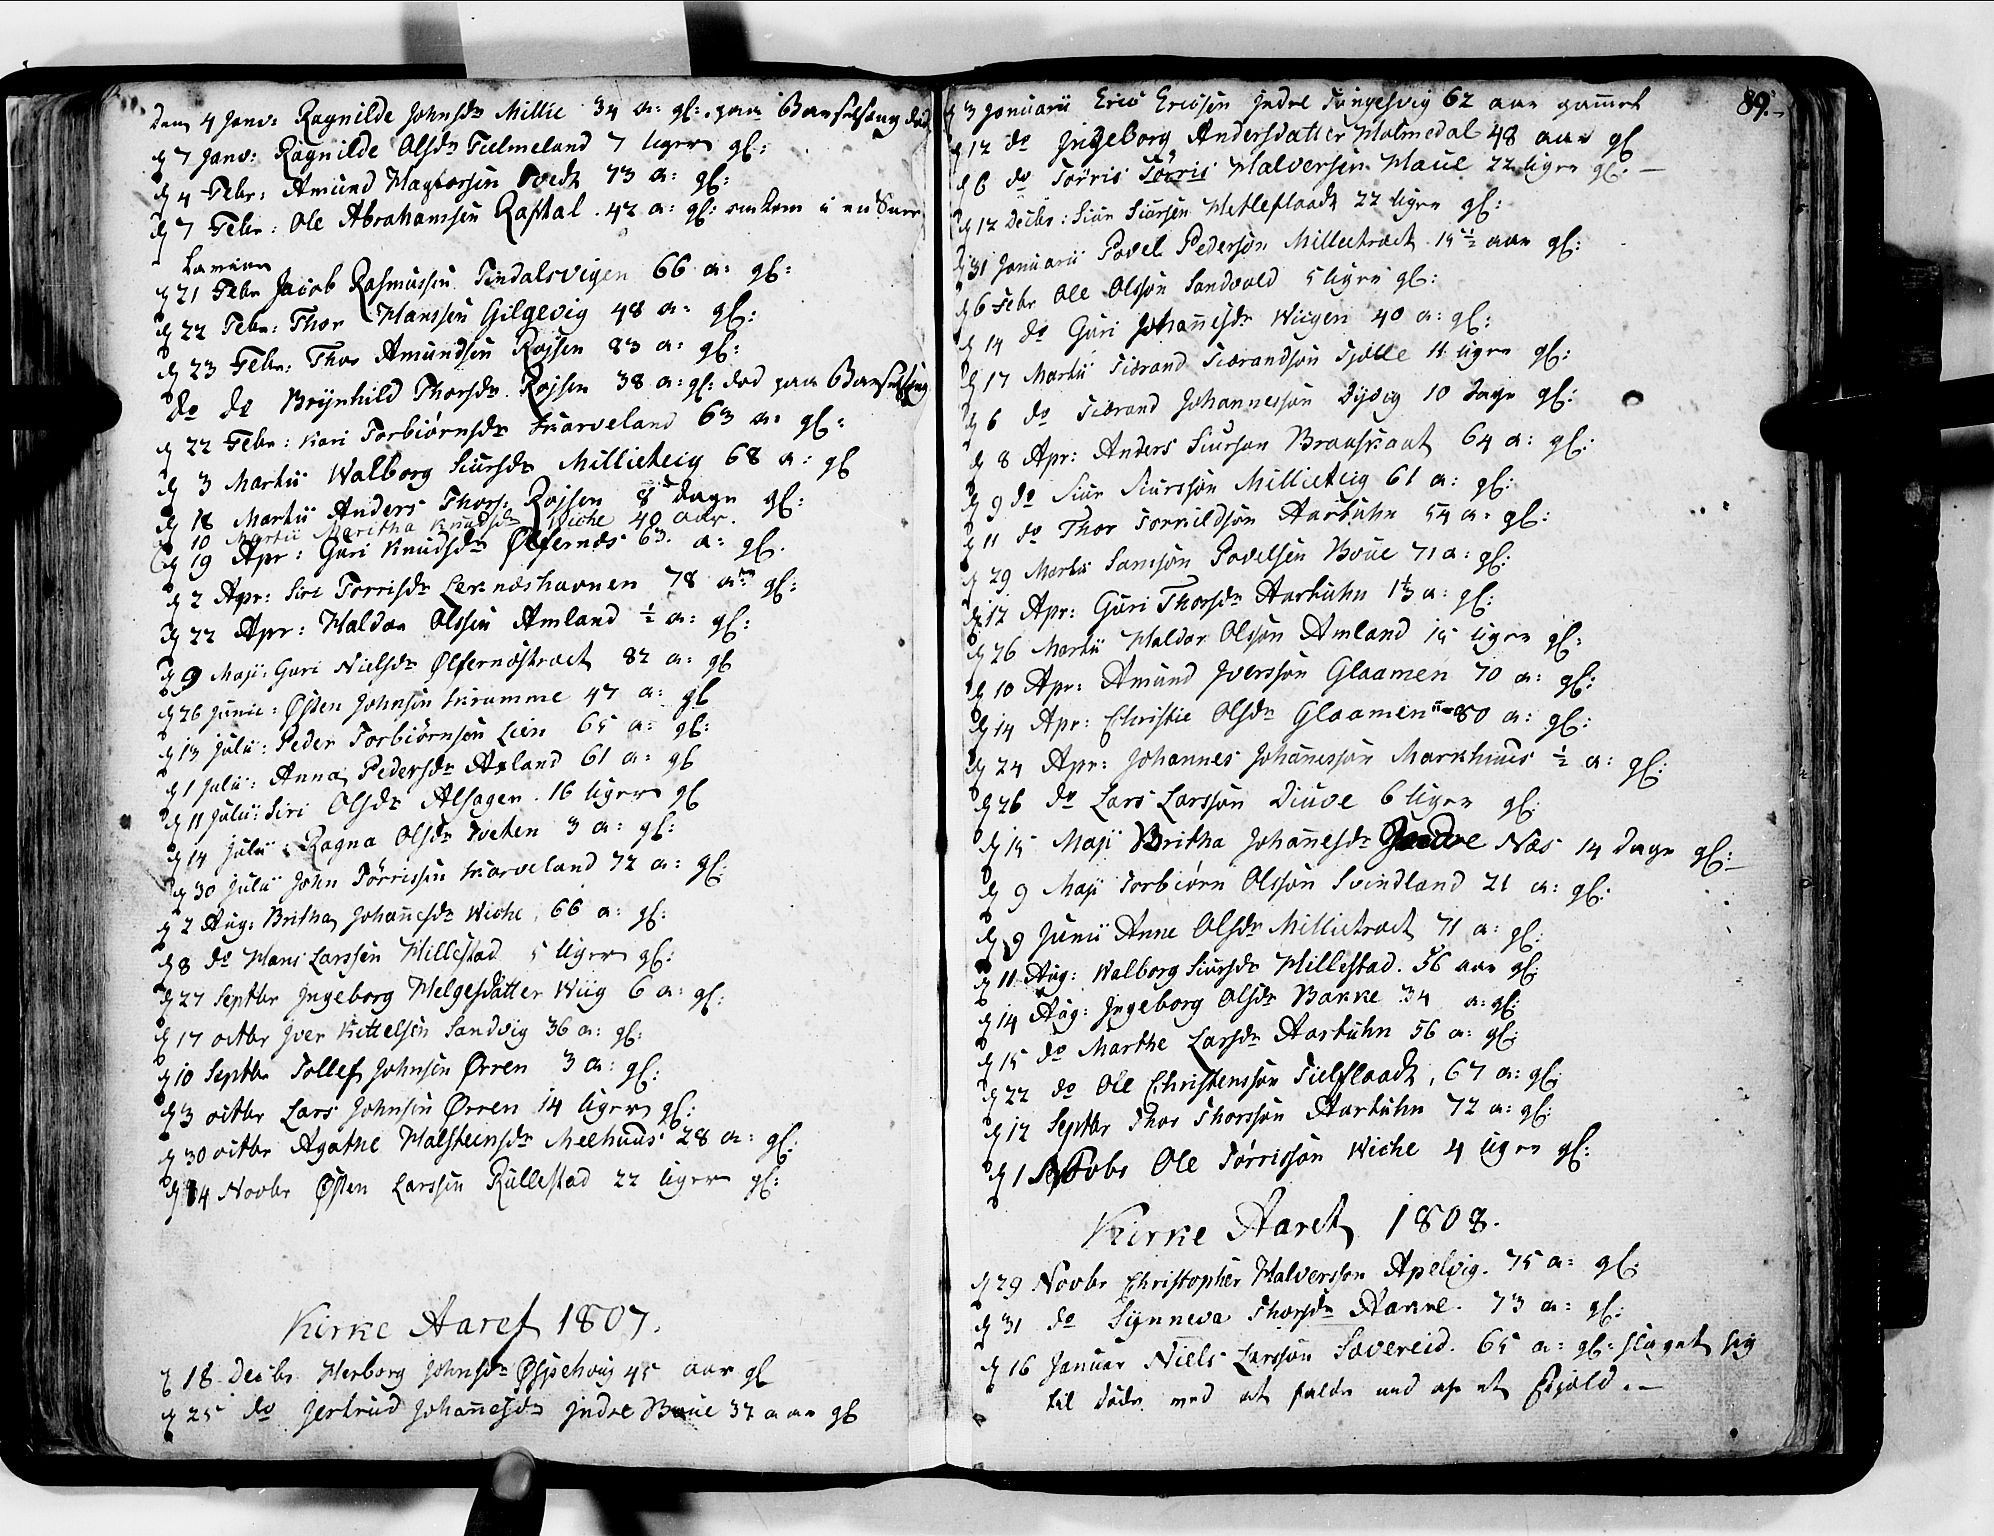 Den 4 Janv: Ragnilde Johnsdr Millie 34 a: gl: paa Barselseng død
d 7 Janv: Ragnilde Olsdr Fielmeland 7 Uger gl:
d 4 Febr: Amund Magtorsen Tvedt 73 a: gl:
d 7 Febr: Ole Abrahamsen Raftal. 42 a: gl: omkom i en Snee
Lavine
d 21 Febr Jacob Rasmussen Tindalsvigen 66 a: gl:
d 22 Febr: Thor Hanssen Gilgevig 48 a: gl:
d 23 Febr: Thor Amundsen Røjsen 83 a: gl:
do do Brynhild Thorsdr. Røjsen 38 a: gl: død paa Barselseng
d 22 Febr: Kari Torbiørnsdr Skarveland 63 a: gl:
d 3 Martii Walborg Siursdr Millieteig 68 a: gl
d 18 Martii Anders Thors: Røjsen 8 Dage gl:
d 10 Martii Maritha Knudsdr Wiche 40 aar.
d 19 Apr: Guri Knudsdr Ølfernes 63. a: gl.
d 2 Apr: Siri Torrisdr Lernæshavnen 78 a: gl:
d 22 Apr: Haldor Olssen Amland ½ a: gl:
d 9 Maji: Guri Nielsdr Ølfernestræet 82 a: gl
d 26 Junii: Østen Johnsen Skramme 47 a: gl
d 13 Julii: Peder Torbiørnsen Lien 65 a: gl:
d 1 Julii: Anna Pedersdr Axland 61 a: gl
d 11 Julii: Siri Olsdr Alsagen. 16 Uger gl
d 14 Julii: Ragna Olsdr Tveten 3 a: gl:
d 30 Julii John Tørrissen Skarveland 72 a: gl:
d 2 Aug: Britha Johañesdr Wiche, 66 a: gl:
d 8 do Hans Larssen Millestad 5 Uger gl:
d 27 Septbr Jngeborg Helgesdatter Wiig 6 a: gl:
d 17 octbr Jver Kittelsen Sandvig 36 a: gl:
d 10 Septbr Tollef Johnsen Ørren 3 a: gl:
d 3 octbr Lars Johnsen Ørren 14 Uger gl:
d 30 octbr Agathe Halsteinsdr Meehuus 28 a: gl:
d 4 Novbr Østen Larssen Rullestad 22 Uger gl:
Kirke Aaret 1807.
d 18. Decbr. Herborg Johnsdr Øspehoug 45 aar gl
d 25 do Jertrud Johañesdr Jndre Boue 37 aar gl
89.
d 3 Januarii Eric Ericsen Jndre Tungesvig 62 aar gamel
d 12 do Jngeborg Andersdatter Malmedal 48 aar gl
d 6 do Torris Tørris Halversen Haue 22 Uger gl. -
d 12 Decbr: Siur Siursen Metleflaadt 22 Uger gl:
d 31 Januarii Povel Pedersøn Millietræet 15½ aar gl:
d 6 Febr Ole Olsson Sandvold 5 Uger gl:
d 14 do Guri Johañesdr Wiigen 40 a: gl:
d 17 Martii Siørand Siørandsøn Tjølle 11 Uger gl:
d 6 do Siørand Johannessøn Dysvig 10 Dage gl:
d 8 Apr: Anders Siurson Braaskaat 64 a: gl:
d 9 do Siur Siurssøn Millieteig 61 a: gl:
d 11 do Thor Torkildsøn Aartuhn 54 a: gl:
d 29 Martii Samsøn Povelsen Boue 71 a: gl:
d 12 Apr: Guri Thorsdr Aartuhn 1½ a: gl:
d 26 Martii Haldor Olsøn Amland 15 Uger gl:
d 10 Apr: Amund Jverssøn Glaamen 70 a: gl:
d 14 Apr: Christie Olsdr Glaamen 80 a: gl:
d 24 Apr: Johannes Johañessøn Markhuus ½ a: gl:
d 26 do Lars Larssøn Diuve 6 Uger gl:
d 15 Maji Britha Johañesdr Jndre Næs 14 Dage gl:
d 9 Maji Torbiørn Olssøn Svindland 21 a: gl:
d 9 Junii Anne Olsdr Millietræet 71 a: gl:
d 11 Aug: Walborg Siursdr Millestad. 56 aar gl:
d 14 Aug: Jngeborg Olsdr Bakke 34 a: gl:
d 15 do Marthe Larsdr Aartuhn 56 a: gl:
d 22 do Ole Christenssøn Fielflaadt, 67 a: gl:
d 12 Septbr Thor Thorssøn Aartuhn 72 a: gl:
d 1 Octobr Ole Tørrissøn Wiche 4 Uger gl:
Kirke Aaret 1808.
d 29 Novbr Christopher Halverssøn Apelvig. 75 a: gl:
d 31 do Synneva Thorsdr Aakre. 73 a: gl:
d 16 Januar Niels Larssøn Søvereid. 65 a: gl: slaget sig
til døde med at falde ned af et Fiæld. -